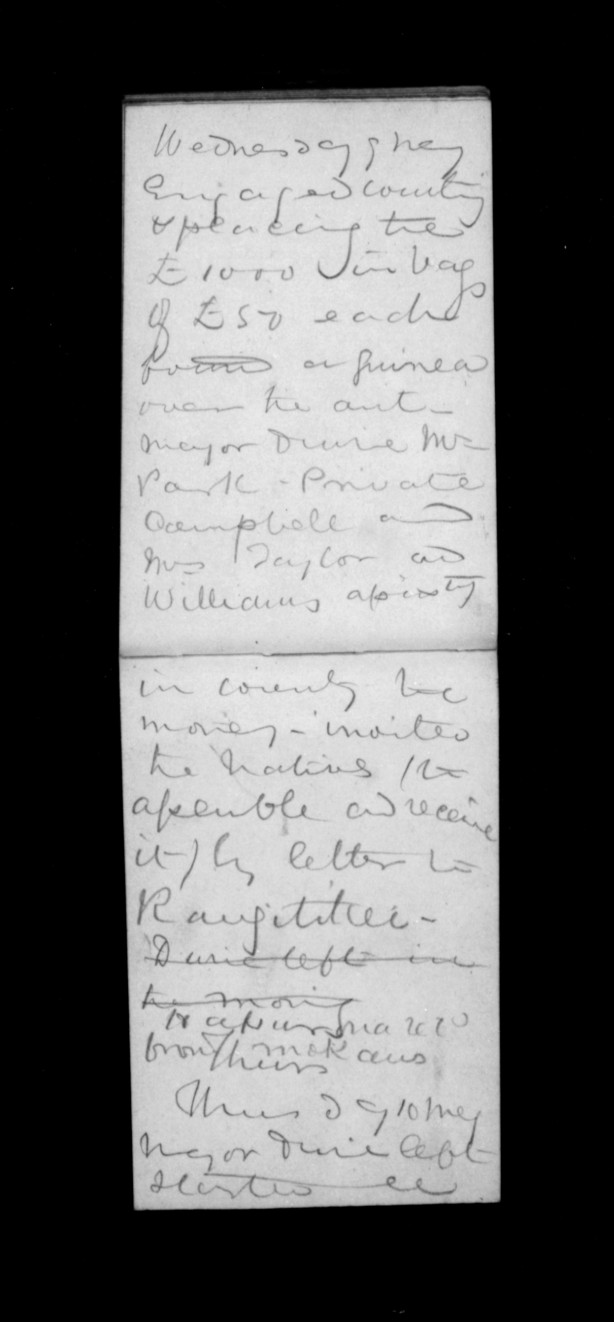 Wednesday 9 May
Engaged counting
& placing the
£1000 in bags
of £50 each
found a guinea
over the amt-
Major Durie Mr
Park - Private
Campbell and
Mrs Taylor and
Williams assistg
in counting the
money - invited
the Natives (to
assemble and receive
it) by letter to
Rangitikei -
Durie left in
the morning
brought
Thursday 10 May
Major Durie left
started